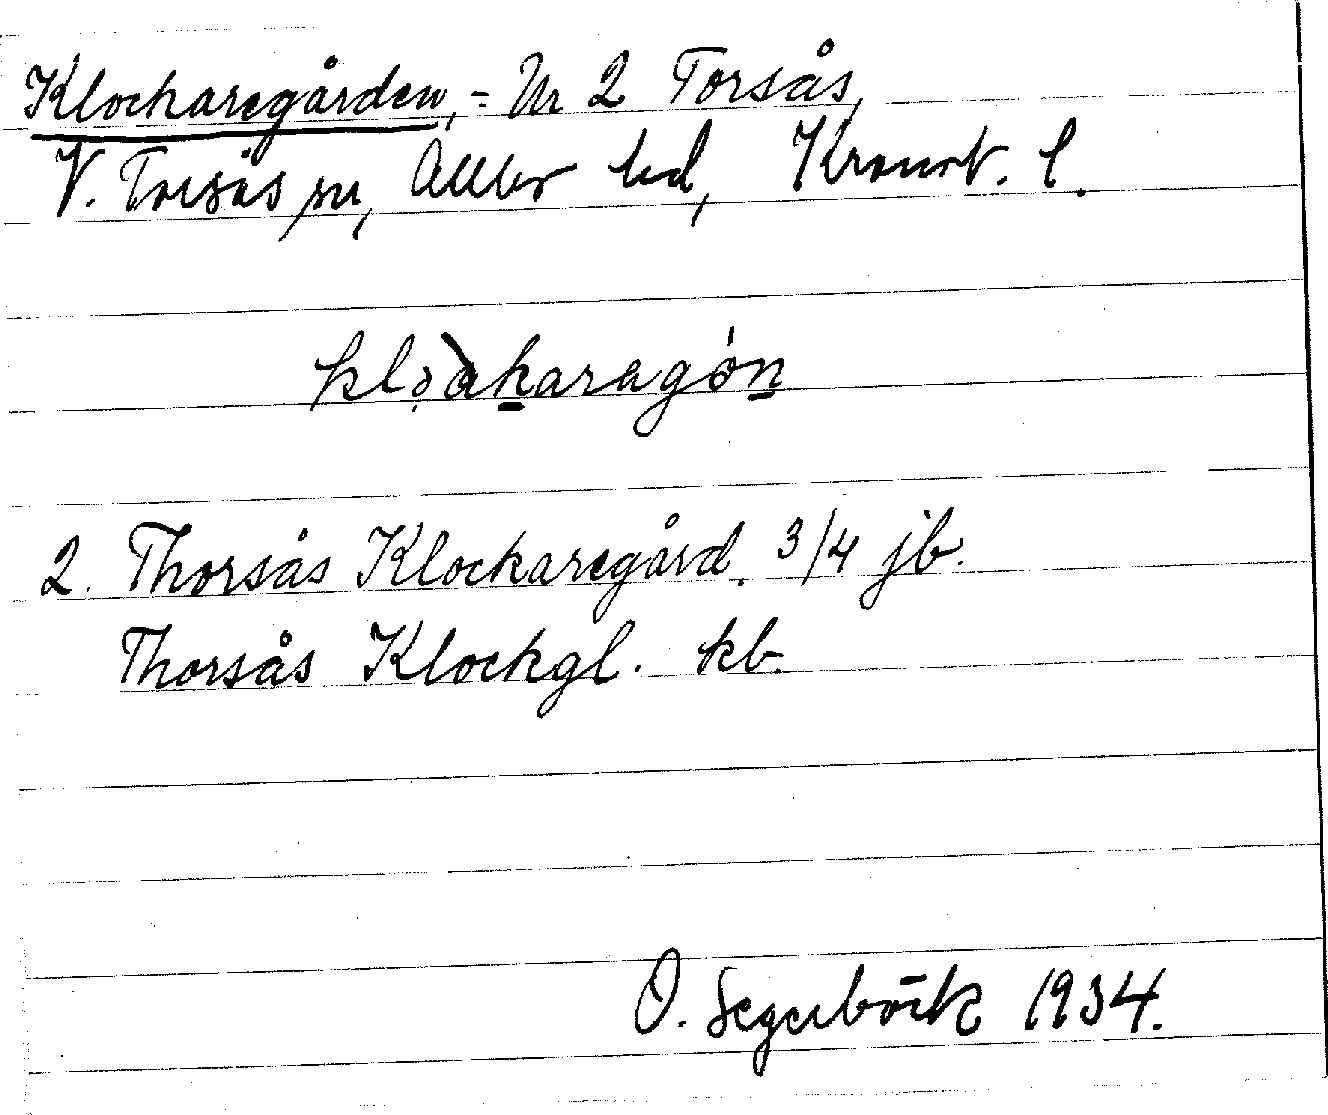 Klockaregården, = Nr 2 Torsås,
V. Torsås sn, Allbo hd, Kronob. l.
klọàkaragó̱n
2. Thorsås Klockaregård. 3/4 jb.
Thorsås Klockgl. kb.
O. Segerbäck 1934.